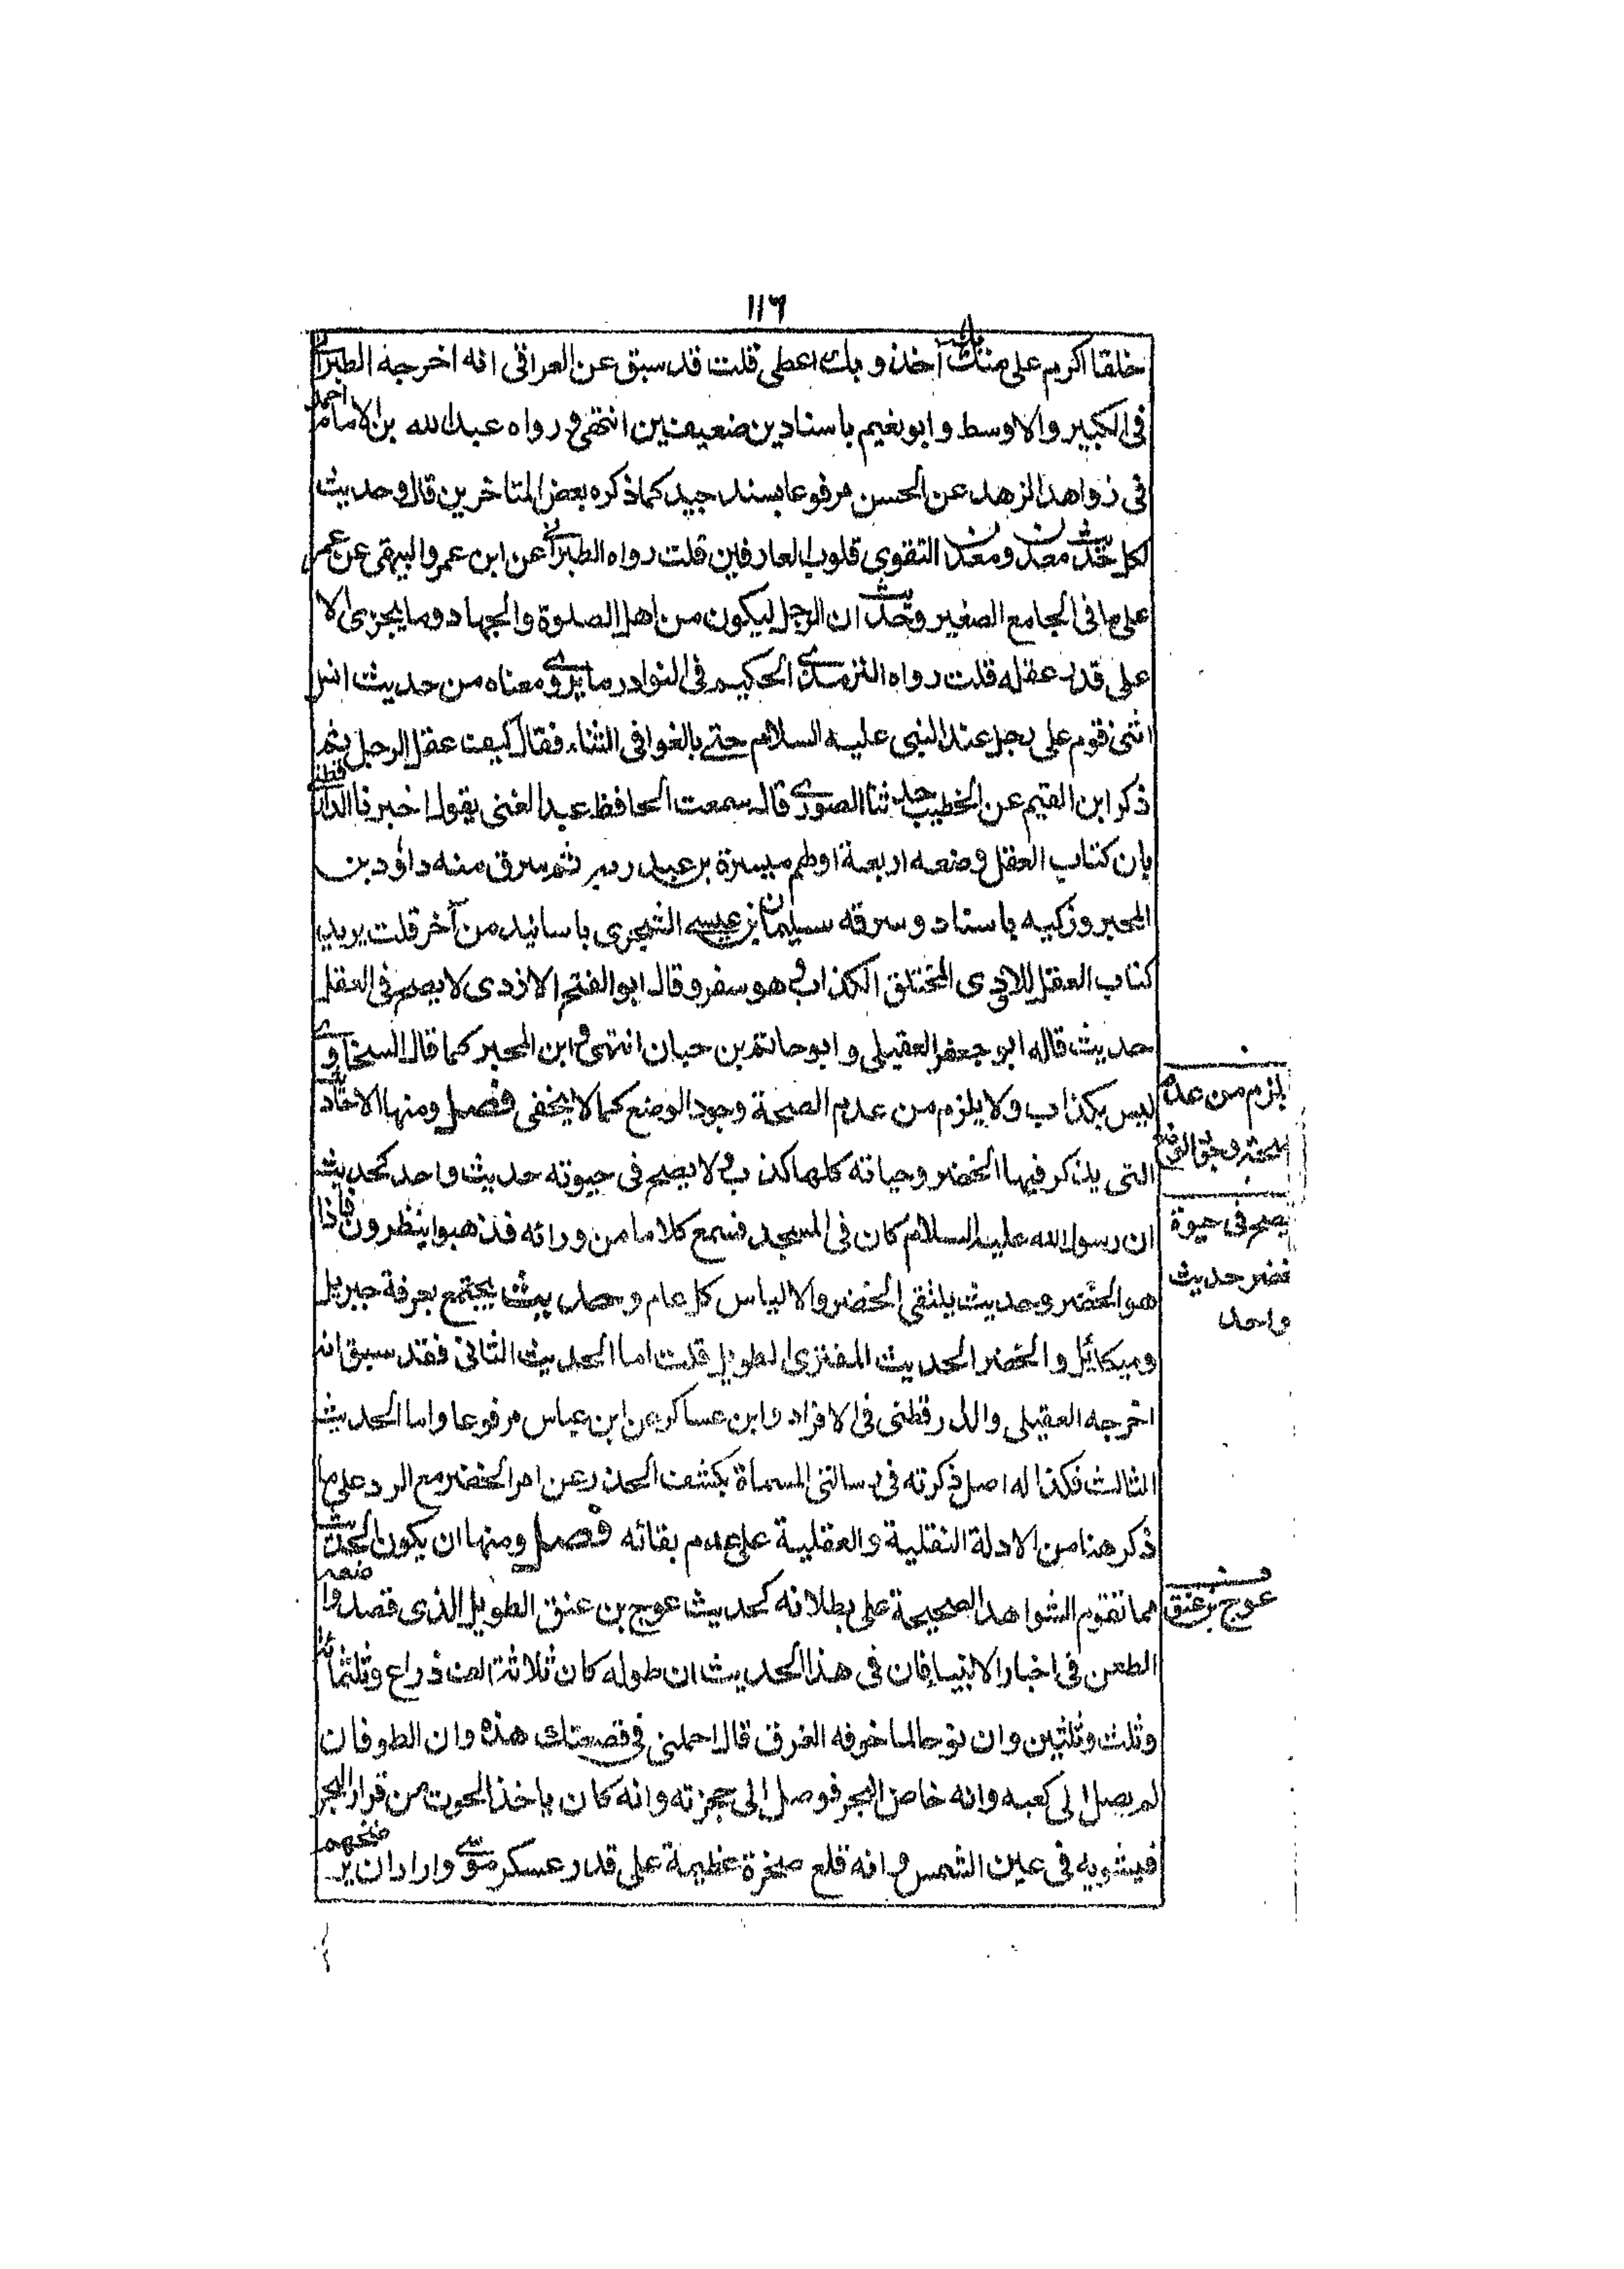 ١١٦
خلقا اكرم على منك بك اخذ و بك اعطى قلت قد سبق عن العراقى انه اخرجه الطبرانى
فى الكبير والاوسط و ابونعيم باسنادين ضعيفين انتهى و رواه عبد الله بن الامام احمد
فى زواهد الزهد عن الحسن مرفوعا بسند جيد كما ذكره بعض المتاخرين قال وحديث
لكل شئ معدن ومعدن التقوى قلوب العارفين قلت رواه الطبرانى عن ابن عمر والبيهقى عن عمر
على ما فى الجامع الصغير وحديث ان الرجل ليكون من اهل الصلوة والجهاد وما يجزى الا
على قدر عقله قلت رواه الترمذى الحكيم فى النوادر ما يروى معناه من حديث انس
اثنى قوم على رجل عند النبى عليه السلام حتى بالغوا فى الثناء فقال كيف عقل الرجل ثم
ذكر ابن القيم عن الخطيب حدثنا الصورى قال سمعت الحافظ عبد الغنى يقول اخبرنا الدارقطنى
بان كتاب العقل وضعه اربعة اولهم ميسرة بن عبد ربه ثم سرق منه داؤد بن
المحبر وركبه باسناد و سرقه سليمان بن عيسى الشجرى باسانيد من آخر قلت يريد
كتاب العقل هو سفر وقال ابو الفتح الازدى لا يصح فى العقل
حديث قاله ابو جعفر العقيلى و ابو حاتم بن حبان انتهى و ابن المحبر كما قال السخاوى
ليس بكذاب ولا يلزم من عدم الصحة وجود الوضع كما لا يخفى فصل ومنها الاحاديث
التى يذكر فيها الخضر وحياته كلها كذب و لا يصح فى حيوته حديث واحد كحديث
ان رسول الله عليه السلام كان فى المسجد فسمع كلاما من ورائه فذهبوا ينظرون فاذا
هو الخضر وحديث يلتقى الخضر والالياس كل عام وحديث يجتمع بعرفة جبريل
وميكائيل والخضر الحديث المفترى الطويل قلت اما الحديث الثانى فقد سبق انه
اخرجه العقيلى والدارقطنى فى الافراد وابن عساكر عن ابن عباس مرفوعا واما الحديث
الثالث فكذا له اصل ذكرته فى رسالتى المسماة بكشف الحذر عن امر الخضر مع الرد على ما
ذكر هنا من الادلة النقلية والعقلية على عدم بقائه فصل ومنها ان يكون الحديث
مما تقوم الشواهد الصحيحة على بطلانه كحديث عوج بن عنق الطويل الذى قصد واضعه
الطعن فى اخبار الانبياء فان فى هذا الحديث ان طوله كان ثلاثة الف ذراع وثلثمائة
وثلث وثلثين وان نوحا لما خوفه الغرق قال احملنى فى قصعتك هذه وان الطوفان
لم يصل الى كعبه وانه خاض البحر فوصل الى حجزته وانه كان ياخذ الحوت من قرار البحر
فيشويه فى عين الشمس وانه قلع صخرة عظيمة على قدر عسكر موسى واراد ان يرضخهم
يلزم من عدم
يصح فى حيوة
خضر حديث
واحد
عوج بن عنق